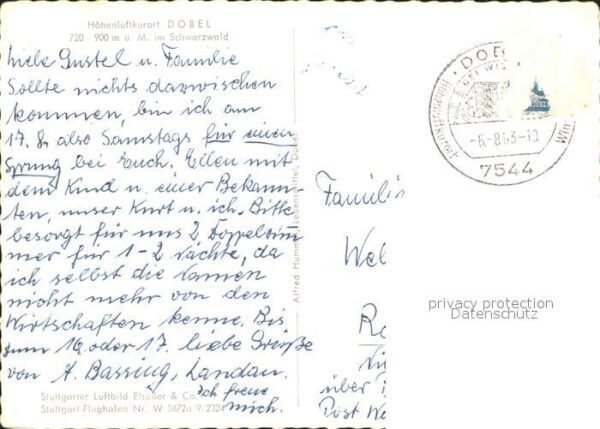 Höhenluftkurort DOBEL
720 - 900 m ü. M. im Schwarzwald
Liebe Gustel u. Familie
Sollte nichts dazwischen
kommen, bin ich am
17.8. also Samstags für einen
Sprung bei Euch. Ellen mit
dem Kind u. einer Bekann-
ten, unser Kurt u. ich. Bitte
besorgt für uns 2 Doppelzim
mer für 1-2 Nächte, da
ich selbst die Namen
nicht mehr von den
Wirtschaften kenne. Bis
zum 16. oder 17. liebe Grüße
von A. Bassing, Landau.
Ich freue
mich.
Stuttgarter Luftbild Elsäßer & Co.
Stuttgart-Flughafen Nr. W 3672a/9/2324
Alfred Hummel, Lebensmittel, Dobel
DOB
-6.-8.63-10
7544
Familie
Wel
privacy protection
Datenschutz
Ro
über
Post We